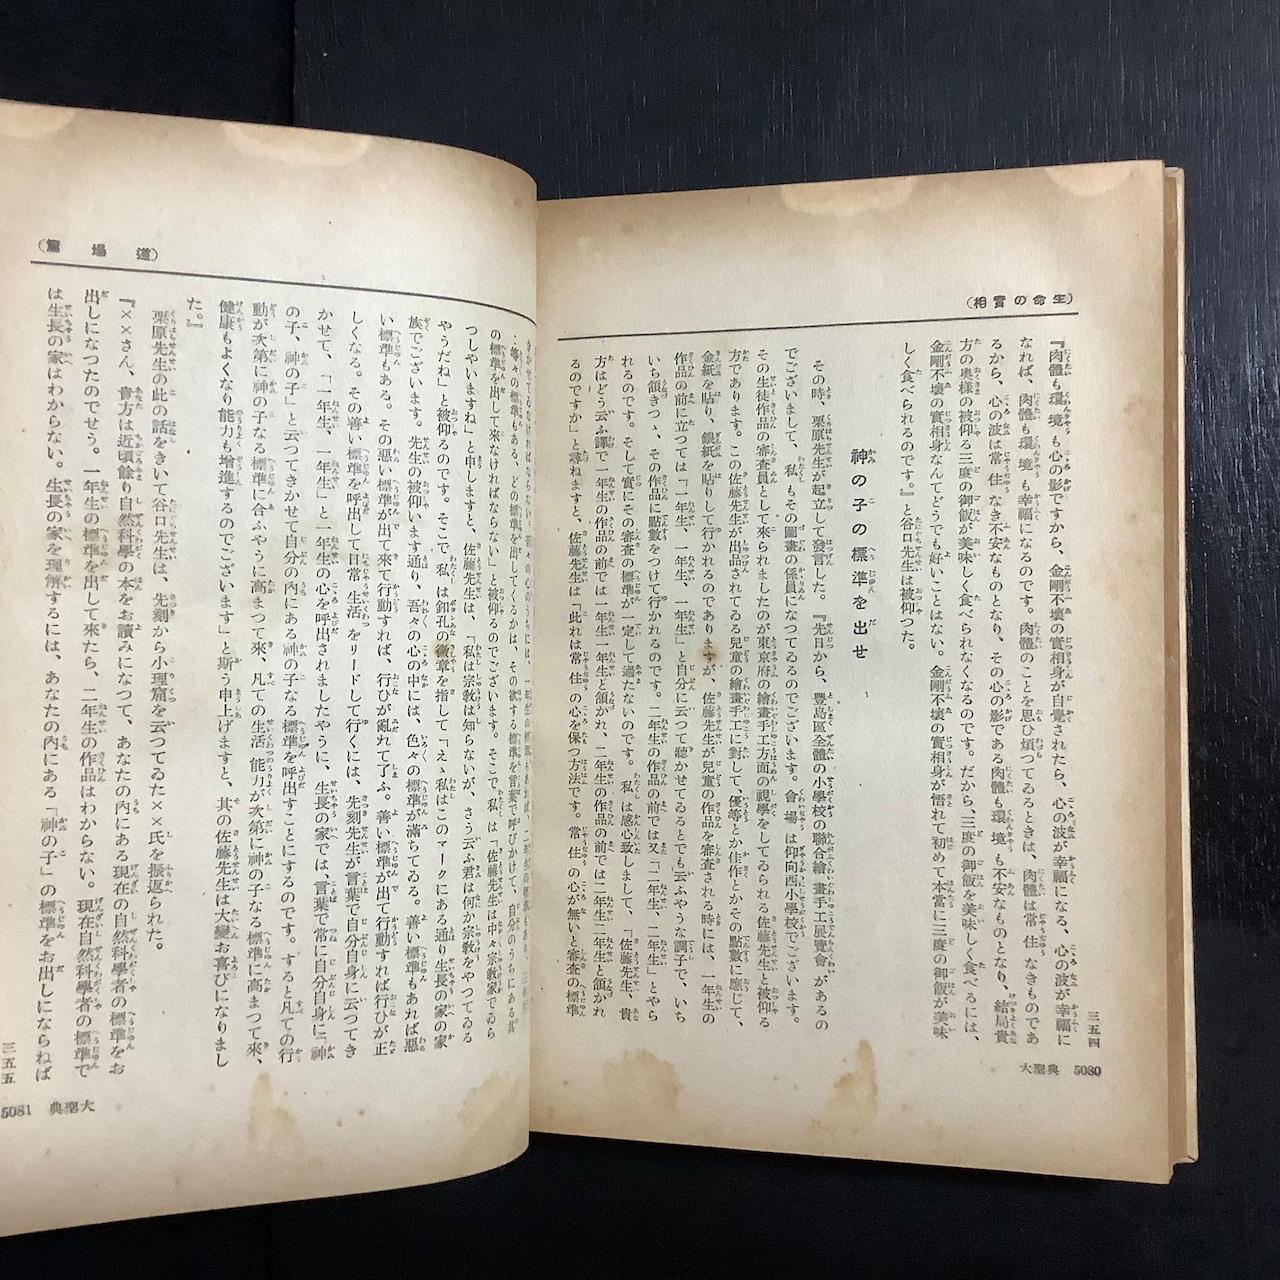 (生命の實相)
『肉體も環境も心の影ですから、金剛不壞の實相身が自覺されたら、心の波が幸福になる、心の波が幸福に
なれば、肉體も環境も幸福になるのです。肉體のことを思ひ煩つてゐるときは、肉體は常住なきものであ
るから、心の波は常住なき不安なものとなり、その心の影である肉體も環境も不安なものとなり、結局貴
方の奥樣の被仰る三度の御飯が美味しく食べられなくなるのです。だから三度の御飯を美味しく食べるには、
金剛不壞の實相身なんてどうでも好いことはない。金剛不壞の實相身が悟れて初めて本當に三度の御飯が美味
しく食べられるのです。』と谷口先生は被仰つた。
神の子の標準を出せ
その時、栗原先生が起立して發言した。『先日から、豐島區全體の小學校の聯合繪畫手工展覽會があるの
でございまして、私もその圖畫の係員になつてゐるのでございます。會場は仰向西小學校でございます。
その生徒作品の審査員として來られましたのが東京府の繪畫手工方面の視學をしてゐられる佐藤先生と被仰る
方であります。この佐藤先生が出品されてゐる兒童の繪畫手工に對して、優等とか佳作とかその點數に應じて、
金紙を貼り、銀紙を貼りして行かれるのでありますが、佐藤先生が兒童の作品を審査される時には、一年生の
作品の前に立つては「一年生、一年生、一年生」と自分に云つて聽かせてゐるとでも云ふやうな調子で、いち
いち頷きつゝ、その作品に點數をつけて行かれるのです。二年生の作品の前では又「二年生、二年生」とやら
れるのです。そして實にその審査の標準が一定して過たないのです。私は感心致しまして、「佐藤先生、貴
方はどう云ふ譯で一年生の作品の前では一年生一年生と頷かれ、二年生の作品の前では二年生二年生と頷かれ
るのですか」と尋ねますと、佐藤先生は「此れは常住の心を保つ方法です。常住の心が無いと審査の標準
三五四
大聖典 5080
(道場篇)
の標準を出して來なければならない」と被仰るのでございます。そこで私は「佐藤先生は中々宗教家でゐら
つしやいますね」と申しますと、佐藤先生は、「私は宗教は知らないが、さう云ふ君は何か宗教をやつてゐる
やうだね」と被仰るのです。そこで私は釦孔の徽章を指して「えゝ私はこのマークにある通り生長の家の家
族でございます。先生の被仰います通り、吾々の心の中には、色々の標準が滿ちてゐる。善い標準もあれば惡
い標準もある。その惡い標準が出て來て行動すれば、行ひが亂れて了ふ。善い標準が出て行動すれば行ひが正
しくなる。その善い標準を呼出して日常生活をリードして行くには、先刻先生が言葉で自分自身に云つてき
かせて、「一年生、一年生」と一年生の心を呼出されましたやうに、生長の家では、言葉で常に自分自身に「神
の子、神の子」と云つてきかせて自分の内にある神の子なる標準を呼出すことにするのです。すると凡ての行
動が次第に神の子なる標準に合ふやうに高まつて來て、凡ての生活能力が次第に神の子なる標準に高まつて來、
健康もよくなり能力も增進するのでございます」と斯う申上げますと、其の佐藤先生は大變お喜びになりまし
た。』
栗原先生の此の話をきいて谷口先生は、先刻から小理窟を云つてゐた××氏を振返られた。
『××さん、貴方は近頃餘り自然科學の本をお讀みになつて、あなたの内にある現在の自然科學者の標準をお
出しになつたのでせう。一年生の標準を出して來たら、二年生の作品はわからない。現在自然科學者の標準で
は生長の家はわからない。生長の家を理解するには、あなたの内にある「神の子」の標準をお出しにならねば
三五五
大聖典 5081